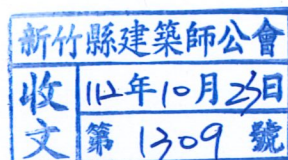 新竹縣建築師公會
收文
112年10月23日
第1309號